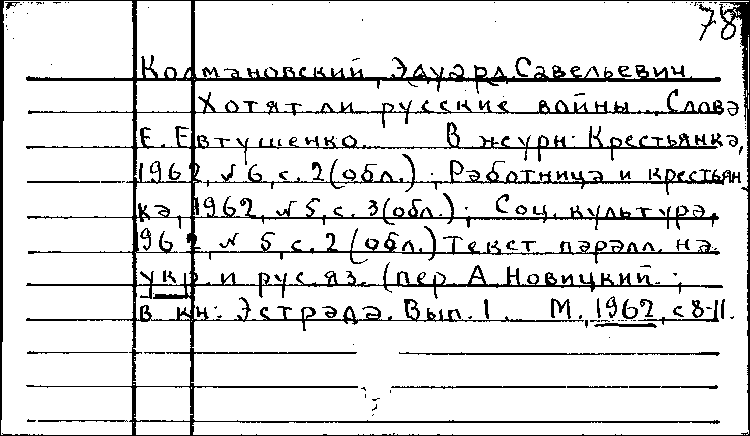 78
Колмановский, Эдуард Савельевич
Хотят ли русские войны. Слова
Е. Евтушенко. В журн: Крестьянка,
1962, № 6, с. 2 (обл.); Работница и крестьян
ка, 1962, № 5, с. 3 (обл.); Соц. культура,
1962, № 5, с. 2 (обл.) Текст паралл. на
укр. и рус. яз. (пер. А. Новицкий.;
в кн: Эстрада. Вып. 1. М., 1962, с 8-11.